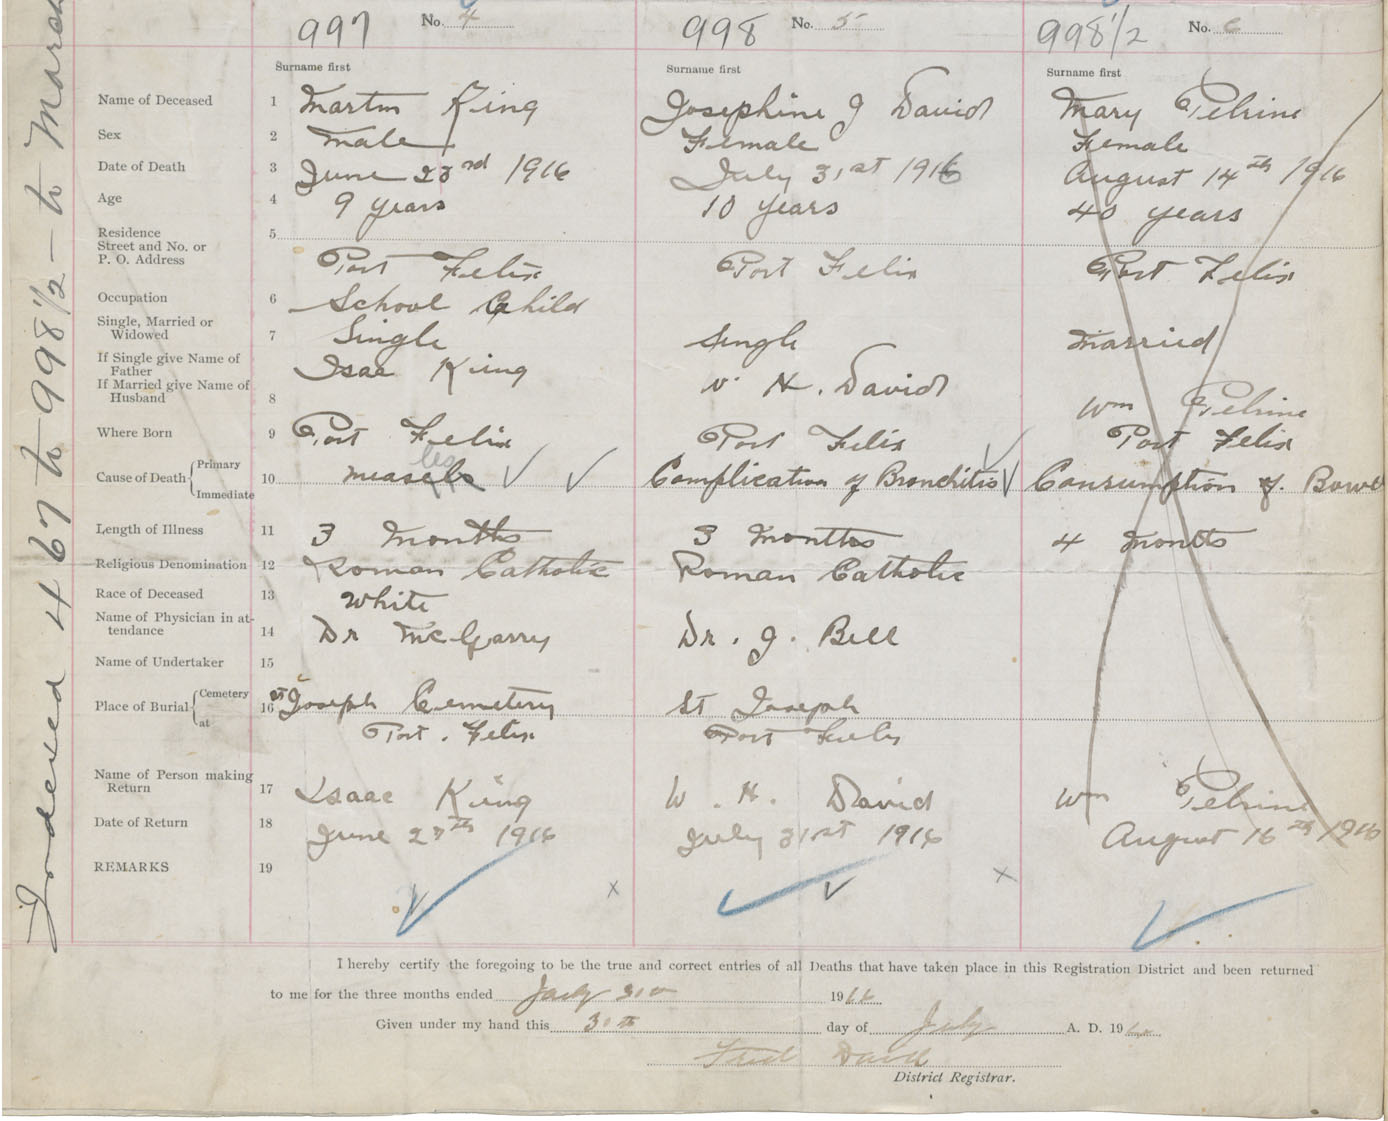 997 No. 4 998 No. 5 998 1/2 No. 6
Surname first Surname first Surname first
Name of Deceased 1 Martin King Josephine J David Mary Pelrine
Sex 2 male Female Female
Date of Death 3 June 23rd 1916 July 31st 1916 August 14th 1916
Age 4 9 years 10 years 40 years
Residence 5
Street and No. or
P. O. Address Port Felix Port Felix Port Felix
Occupation 6 School Child
Single, Married or
Widowed 7 Single Single married
If Single give Name of
Father Isac King
If Married give Name of
Husband 8 H. David Wm Pelrine
Where Born 9 Port Felix Port Felix Port Felix
Cause of Death { Primary
Immediate 10 measels les Complication of Bronchitis Consumption of Bowel
Length of Illness 11 3 Months 3 months 4 months
Religious Denomination 12 Roman Catholic Roman Catholic
Race of Deceased 13 White
Name of Physician in at-
tendance 14 Dr McGarry Dr. J. Bell
Name of Undertaker 15
Place of Burial { Cemetery 16 St Joseph Cemetery St Joseph
at Port. Felix Port Felix
Name of Person making
Return 17 Isaac King W. H. David Wm Pelrine
Date of Return 18 June 27th 1916 July 31st 1916 August 16th 1916
REMARKS 19
I hereby certify the foregoing to be the true and correct entries of all Deaths that have taken place in this Registration District and been returned
to me for the three months ended July 1916
Given under my hand this 30th day of July A. D. 19
Fred David
District Registrar.
Indexed 467 to 998 1/2 — to March